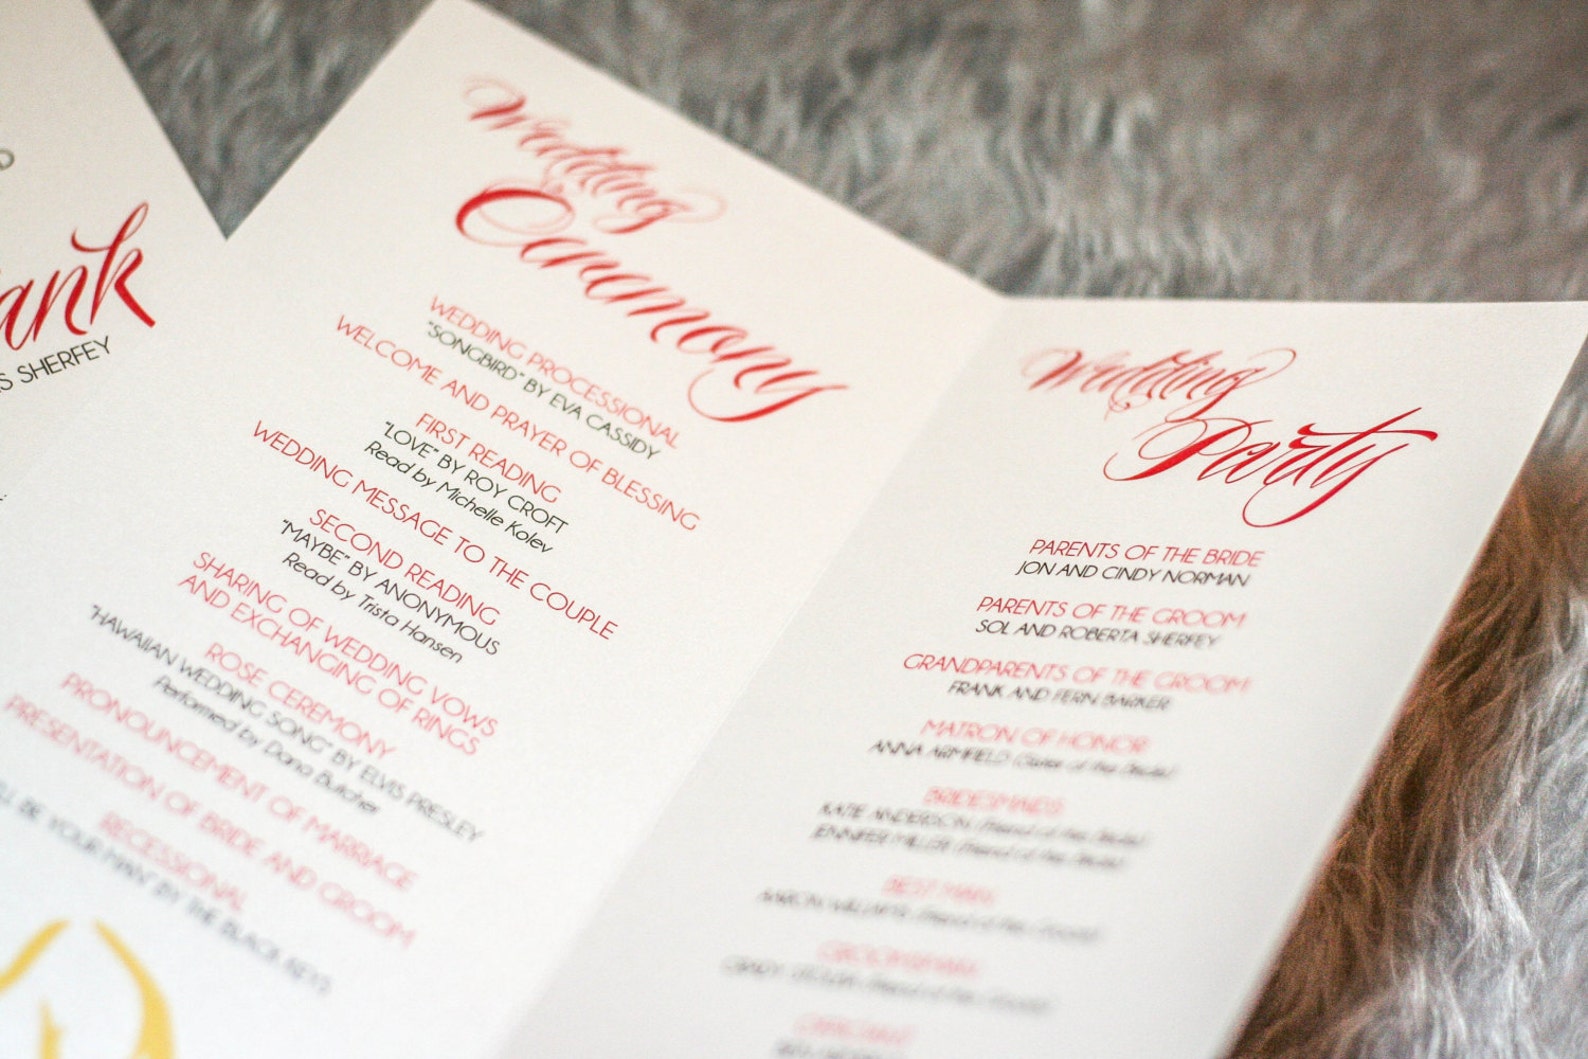 ank
SHERFEY
Wedding
Ceremony
WEDDING PROCESSIONAL
"SONGBIRD" BY EVA CASSIDY
WELCOME AND PRAYER OF BLESSING
FIRST READING
"LOVE" BY ROY CROFT
Read by Michelle Kolev
WEDDING MESSAGE TO THE COUPLE
SECOND READING
"MAYBE" BY ANONYMOUS
Read by Trista Hansen
SHARING OF WEDDING VOWS
AND EXCHANGING OF RINGS
ROSE CEREMONY
"HAWAIIAN WEDDING SONG" BY ELVIS PRESLEY
Performed by Dana Butcher
PRONOUNCEMENT OF MARRIAGE
PRESENTATION OF BRIDE AND GROOM
RECESSIONAL
BE YOUR MAN" BY THE BLACK KEYS
Wedding
Party
PARENTS OF THE BRIDE
JON AND CINDY NORMAN
PARENTS OF THE GROOM
SOL AND ROBERTA SHERFEY
GRANDPARENTS OF THE GROOM
FRANK AND FERN BARKER
MATRON OF HONOR
ANNA ARMFIELD (Sister of the Bride)
BRIDESMAIDS
KATE ANDERSON (Friend of the Bride)
JENNIFER MILLER (Friend of the Bride)
BEST MAN
AARON (Friend of the Groom)
GROOMSMAN
(Friend of the Groom)
OFFICIANT